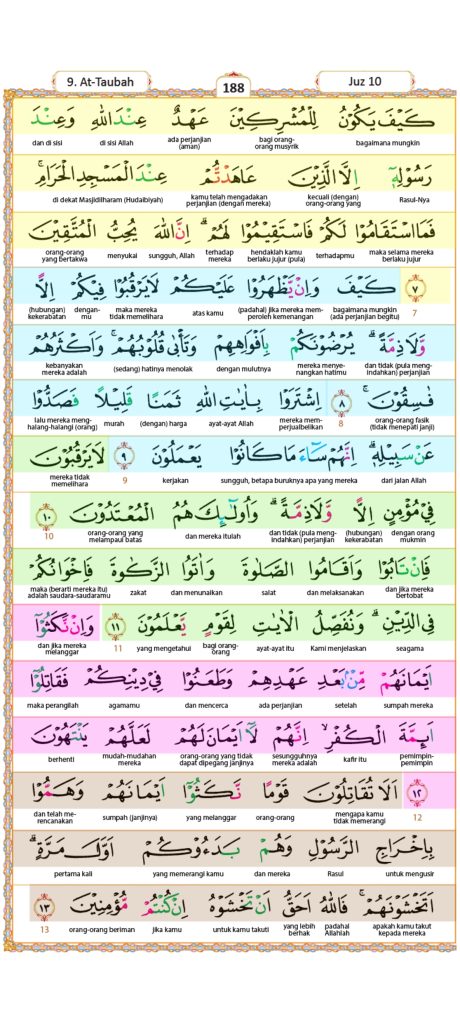 9. At-Taubah 188 Juz 10
كَيْفَ يَكُوْنُ لِلْمُشْرِكِيْنَ عَهْدٌ عِنْدَ اللّٰهِ وَعِنْدَ
bagaimana mungkin bagi orang-orang musyrik ada perjanjian (aman) di sisi Allah dan di sisi
رَسُوْلِهٖٓ اِلَّا الَّذِيْنَ عَاهَدْتُّمْ عِنْدَ الْمَسْجِدِ الْحَرَامِۚ
Rasul-Nya kecuali (dengan) orang-orang yang kamu telah mengadakan perjanjian (dengan mereka) di dekat Masjidilharam (Hudaibiyah)
فَمَا اسْتَقَامُوْا لَكُمْ فَاسْتَقِيْمُوْا لَهُمْۗ اِنَّ اللّٰهَ يُحِبُّ الْمُتَّقِيْنَ
maka selama mereka berlaku jujur terhadapmu hendaklah kamu berlaku jujur (pula) terhadap mereka sungguh, Allah menyukai orang-orang yang bertakwa
٧ كَيْفَ وَاِنْ يَّظْهَرُوْا عَلَيْكُمْ لَا يَرْقُبُوْا فِيْكُمْ اِلًّا
7 bagaimana mungkin (ada perjanjian begitu) (padahal) jika mereka memperoleh kemenangan atas kamu maka mereka tidak memelihara denganmu (hubungan) kekerabatan
وَّلَا ذِمَّةًۗ يُرْضُوْنَكُمْ بِاَفْوَاهِهِمْ وَتَأْبٰى قُلُوْبُهُمْۚ وَاَكْثَرُهُمْ
dan tidak (pula mengindahkan) perjanjian mereka menyenangkan hatimu dengan mulutnya (sedang) hatinya menolak kebanyakan mereka adalah
فٰسِقُوْنَۚ ٨ اِشْتَرَوْا بِاٰيٰتِ اللّٰهِ ثَمَنًا قَلِيْلًا فَصَدُّوْا
orang-orang fasik (tidak menepati janji) 8 mereka memperjualbelikan ayat-ayat Allah (dengan) harga murah lalu mereka menghalang-halangi (orang)
عَنْ سَبِيْلِهٖۗ اِنَّهُمْ سَاۤءَ مَا كَانُوْا يَعْمَلُوْنَ ٩ لَا يَرْقُبُوْنَ
dari jalan Allah sungguh, betapa buruknya apa yang mereka kerjakan 9 mereka tidak memelihara
فِيْ مُؤْمِنٍ اِلًّا وَّلَا ذِمَّةًۗ وَاُولٰۤىِٕكَ هُمُ الْمُعْتَدُوْنَ ١٠
dengan orang mukmin (hubungan) kekerabatan dan tidak (pula mengindahkan) perjanjian dan mereka itulah orang-orang yang melampaui batas 10
فَاِنْ تَابُوْا وَاَقَامُوا الصَّلٰوةَ وَاٰتَوُا الزَّكٰوةَ فَاِخْوَانُكُمْ
dan jika mereka bertobat dan melaksanakan salat dan menunaikan zakat maka (berarti mereka itu) adalah saudara-saudaramu
فِى الدِّيْنِۗ وَنُفَصِّلُ الْاٰيٰتِ لِقَوْمٍ يَّعْلَمُوْنَ ١١ وَاِنْ نَّكَثُوْٓا
seagama Kami menjelaskan ayat-ayat itu bagi orang-orang yang mengetahui 11 dan jika mereka melanggar
اَيْمَانَهُمْ مِّنْۢ بَعْدِ عَهْدِهِمْ وَطَعَنُوْا فِيْ دِيْنِكُمْ فَقَاتِلُوْٓا
sumpah mereka setelah ada perjanjian dan mencerca agamamu maka perangilah
اَىِٕمَّةَ الْكُفْرِۙ اِنَّهُمْ لَآ اَيْمَانَ لَهُمْ لَعَلَّهُمْ يَنْتَهُوْنَ
pemimpin-pemimpin kafir itu sesungguhnya mereka adalah orang-orang yang tidak dapat dipegang janjinya mudah-mudahan mereka berhenti
١٢ اَلَا تُقَاتِلُوْنَ قَوْمًا نَّكَثُوْٓا اَيْمَانَهُمْ وَهَمُّوْا
12 mengapa kamu tidak memerangi orang-orang yang melanggar sumpah (janjinya) dan telah merencanakan
بِاِخْرَاجِ الرَّسُوْلِ وَهُمْ بَدَءُوْكُمْ اَوَّلَ مَرَّةٍۗ
untuk mengusir Rasul dan mereka yang memerangi kamu pertama kali
اَتَخْشَوْنَهُمْۚ فَاللّٰهُ اَحَقُّ اَنْ تَخْشَوْهُ اِنْ كُنْتُمْ مُّؤْمِنِيْنَ ١٣
apakah kamu takut kepada mereka padahal Allahlah yang lebih berhak untuk kamu takuti jika kamu orang-orang beriman 13